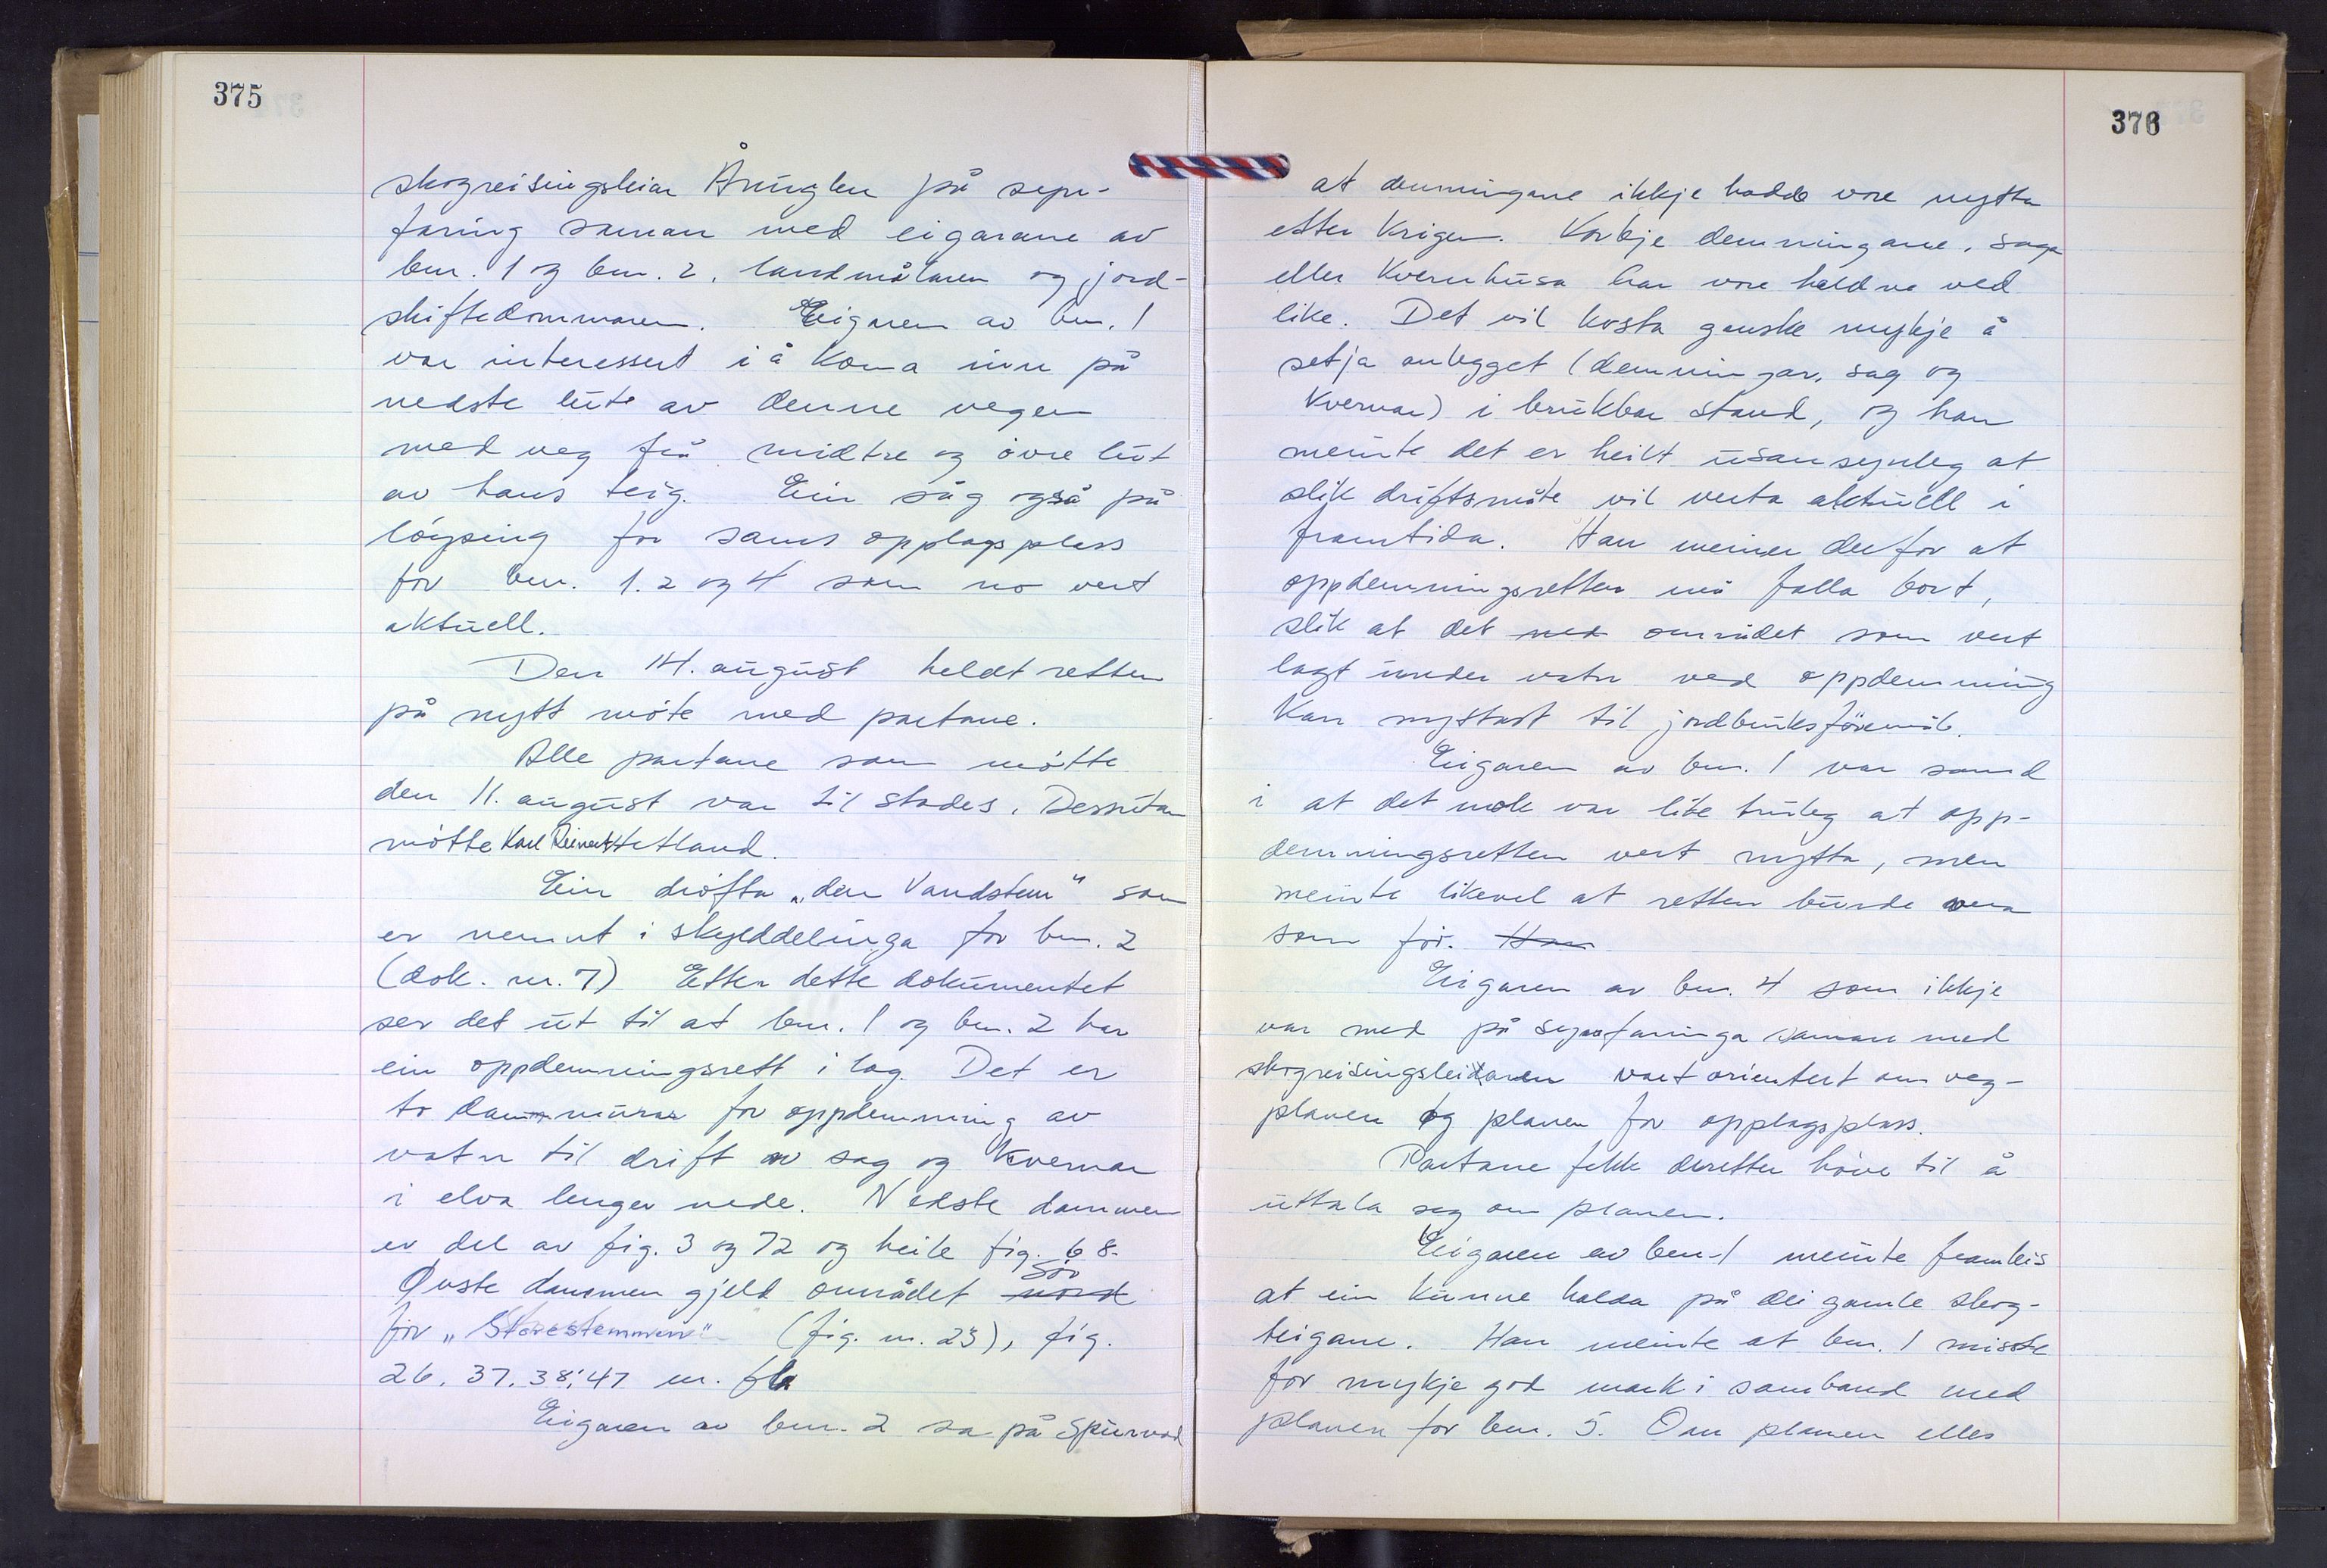 375
skogreisingsleiar Årnglen på syn-
faring saman med eigarane av
bnr. 1 og bnr. 2, landmålaren og jord-
skiftedommaren. Eigaren av bnr. 1
var interessert i å koma inn på
nedste lut av denne vegen
med veg frå midtre og övre lut
av hans teig. Ein såg også på
löyping for sams opplagsplass
for bnr. 1. 2 og 4 som no vert
aktuell.
Den 14. august heldt retten
på nytt möte med partane.
Alle partane som mötte
den 11. august var til stades. Dessutan
mötte Karl Reinert Hetland.
Ein dröfta „den Vandstem" som
er nemnt i skylddelinga for bnr. 2
(dok. nr. 7) Etter dette dokumentet
ser det ut til at bnr. 1 og bnr. 2 har
ein oppdemningsrett i lag. Det er
to dammurar for oppdemming av
vatn til drift av sag og kvernar
i elva lenger nede. Nedste dammen
er del av fig. 3 og 72 og heile fig. 68.
Øvste dammen gjeld området nord sör
for „Storestemmen" (fig. nr. 23), fig.
26. 37. 38. 47 m. fl.
Eigaren av bnr. 2 sa på spurnad
376
at demningane ikkje hadde vore nytta
etter krigen. Korkje demningane, saga
eller kvernhusa har vore haldne ved
like. Det vil kosta ganske mykje å
setja anlegget (demningar, sag og
kvernar) i brukbar stand, og han
meinte det er heilt usannsynleg at
slik driftsmåte vil verta aktuell i
framtida. Han meiner derfor at
oppdemningsretten må falla bort,
slik at det ned området som vert
lagt under vatn ved oppdemming
kan nyttast til jordbruksföremål.
Eigaren av bnr. 1 var samd
i at det nok var lite truleg at opp-
demningsretten vert nytta, men
meinte likevel at retten burde vera
som för. Han
Eigaren av bnr. 4 som ikkje
var med på synfaringa saman med
skogreisingsleiaren vart orientert om veg-
planen og planen for opplagsplass.
Partane fekk deretter höve til å
uttala seg om planen.
Eigaren av bnr. 1 meinte framleis
at ein kunne halda på dei gamle skog-
teigane. Han meinte at bnr. 1 misste
for mykje god mark i samband med
planen for bnr. 5. Om planen elles